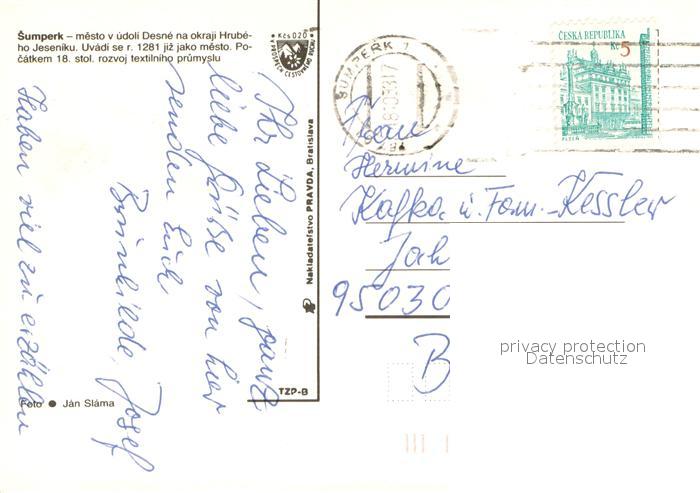 Šumperk – město v údolí Desné na okraji Hrubé-
ho Jeseníku. Uvádí se r. 1281 již jako město. Po-
čátkem 18. stol. rozvoj textilního průmyslu
Kčs 0,20
V PROSPĚCH CESTOVNÉHO RUCHU
Ihr Lieben, ganz
liebe Grüsse von hier
senden Euch
Brunhilde, Josef
Haben viel zu erzählen
Foto ● Ján Sláma
Nakladateľstvo PRAVDA, Bratislava
TZP-B
ŠUMPERK 1
ČESKÁ REPUBLIKA
Kč 5
PLZEŇ
Frau
Hermine
Kafka u. Fam. Kessler
95030
B
privacy protection
Datenschutz